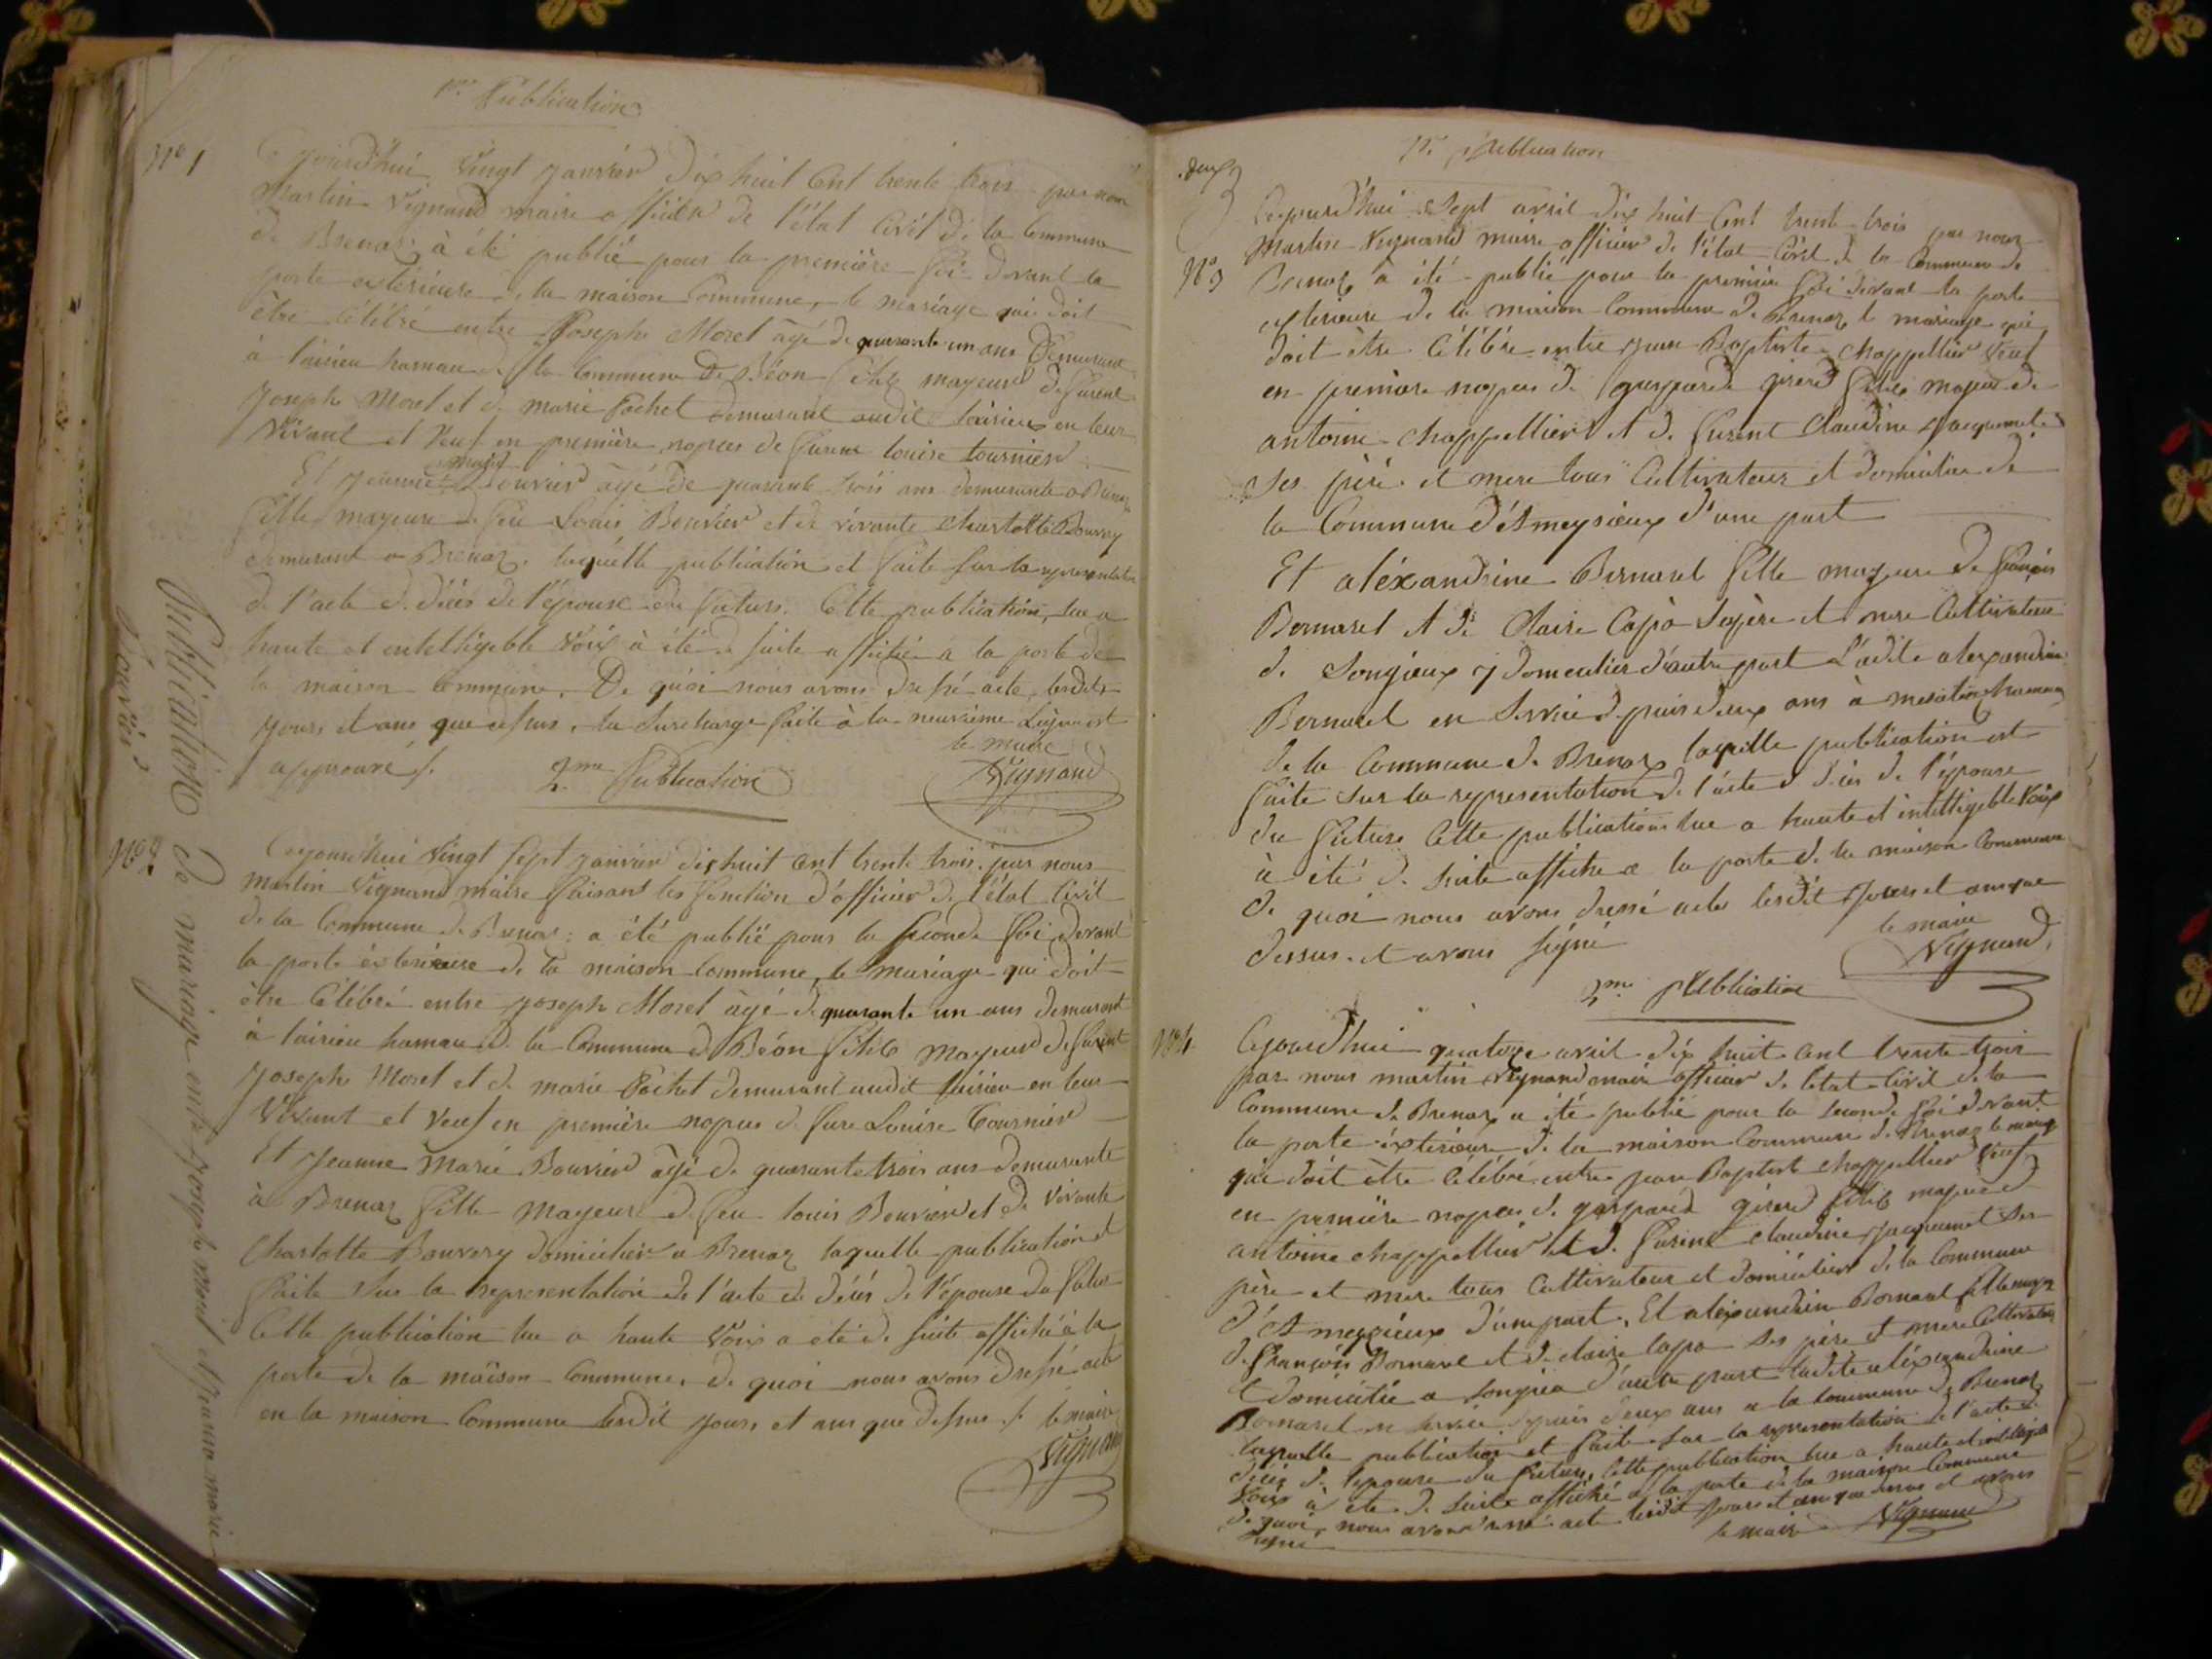 1re Publication
No 1
Cejourd'hui Vingt janvier dix huit Cent trente trois par nous
Martin Vignand maire officier de l'état Civil de la Commune
de Brenaz à été publié pour la première foi devant la
porte extérieure de la maison Commune, le mariage qui doit
être Célébré entre Joseph Morel âgé de quarante un ans demurant
à laisieu hamau de la Commune de Béon fils mayeur de furent
Joseph Morel et de marie Pochet demurant audit laisieu en leur
Vivant et Veuf en première nopces de fure louise tournier
Et jeanne marie Bouvier âgé de quarante trois ans demurante a Brenaz
fille mayeure de feu Louis Bouvier et de vivante Charlotte Bouvery
demurant a Brenaz. laquelle publication et faite sur la representation
de l'acte de décés de l'épouse du futurs. Cette publication, lue a
haute et entelligeble Voix à été de suite affiché a la porte de
la maison Commune. De quoi nous avons dressé acte, lesdits
jours et ans que dessus, la surcharge faite à la neuvième ligne est
approuvé /.
le maire
Vignand
2me Publication
No 2
Cejourd'hui Vingt sept janvier dix huit Cent trente trois par nous
Martin Vignand maire faisant les fonction d'officier de l'état Civil
de la Commune de Brenaz: a été publié pour la seconde foi devant
la porte éxterieure de la maison Commune, le mariage qui doit
être Célébré entre Joseph Morel âgé de quarante un ans demurant
à laisieu hamau de la Commune de Béon fils mayeur de furent
Joseph Morel et de marie Pochet demurant audit laisieu en leur
Vivant et Veuf en première nopces de fure Louise Tournier
Et Jeanne Marie Bouvier âgé de quarante trois ans demurante
à Brenaz fille mayeur de feu louis Bouvier et de vivante
Charlotte Bouvery domicilier a Brenaz laquelle publication et
faite sur la representation de l'acte de décés de l'épouse du futur
Cette publication lue a haute Voix a été de suite affiché à la
porte de la maison Commune. de quoi nous avons dressé acte
en la maison Commune lesdit jours et ans que dessus /. le maire
Vignand
Publication de mariage entre Joseph morel et Jeanne marie
Bouvier
deux
1re publication
No 3
Cejourd'hui Sept avril dix huit Cent trente trois par nous
Martin Vignand maire officier de l'état Civil de la Commune de
Brenaz a été publié pour la première foi devant la porte
exterieure de la maison Commune de Brenaz le mariage qui
doit être Célébré entre jean Baptiste Chappellier Veuf
en première nopces de gasparde girard fils mayeur de
antoine Chappellier et de furent Claudine Jacquemet
ses père et mere tous Cultivateur et domicilier de
la Commune d'Ameysieux d'une part
Et aléxandrine Bornarel fille mayeure de françois
Bornarel et de Claire Capo sa père et mere Cultivateur
de Songieux y domicilier d'autre part Ladite alexandrine
Bornarel en Service depuis deux ans à hamau
de la Commune de Brenaz laquelle publication est
faite sur la representation de l'acte de décés de l'épouse
du future Cette publication lue a haute et intelligeble Voix
à été de suite affiche a la porte de la maison Commune
de quoi nous avons dressé acte lesdit Jours et ans que
dessus. et avons signé
le maire
Vignand
2me Publication
No 4
Cejourd'hui quatorze avril dix huit Cent trente trois
par nous martin Vignand maire officier de l'état Civil de la
Commune de Brenaz a été publié pour la seconde foi devant
la porte éxterieure de la maison Commune de Brenaz le mariage
qui doit être Célébré entre jean Baptiste Chappellier Veuf
en première nopces de gasparde girard fils mayeur de
antoine Chappellier et de furent Claudine Jacquemet ses
père et mere tous Cultivateur et domicilier de la Commune
d'Ameysieux d'une part. Et aléxandrine Bornarel fille mayeure
de françois Bornarel et de claire Capo ses père et mere Cultivateur
et domicilié a Songieu d'autre part ladite aléxandrine
Bornarel en service depuis deux ans a la Commune de Brenaz
laquelle publication et faite sur la representation de l'acte de
décés de l'epouse du future, Cette publication lue a haute et intelligible
Voix à été de suite affiché a la porte de la maison Commune
de quoi nous avons dressé acte lesdit Jours et ans que dessus et avons
signé
le maire Vignand